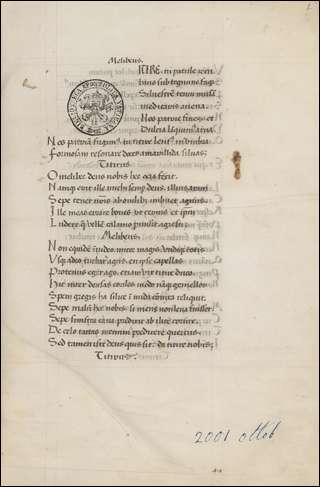 Melibeus.
TIRE. tu patule recu
bans sub tegmine fagi
Silvestrem tenui musa
meditaris avena.
Nos patrie fines et
Dulcia linquimus arva
Nos patriam fugimus tu titire lentus in umbra
Formosam resonare doces amarillida silvas:
Titirus
O melibee deus nobis hec ocia fecit.
Namque erit ille michi semper deus. illius aram
Sepe tener nostris ab ovilibus imbuet agnus.
Ille meas errare boves ut cernis et ipsum
Ludere que vellem calamo permisit agresti.
Melibeus.
Non equidem invideo miror magis undique totis
Usque adeo turbatur agris. en ipse capellas
Protenus eger ago. etiam vix titire duco.
Hic inter densas corilos modo namque gemellos
Spem gregis ha silice in nuda connixa reliquit.
Sepe malum hoc nobis si mens non leva fuisset
Sepe sinistra cava predixit ab ilice cornix.
De celo tactas memini predicere quercus.
Sed tamen iste deus quis sit. da titire nobis:
Titirus.
2001 ottob